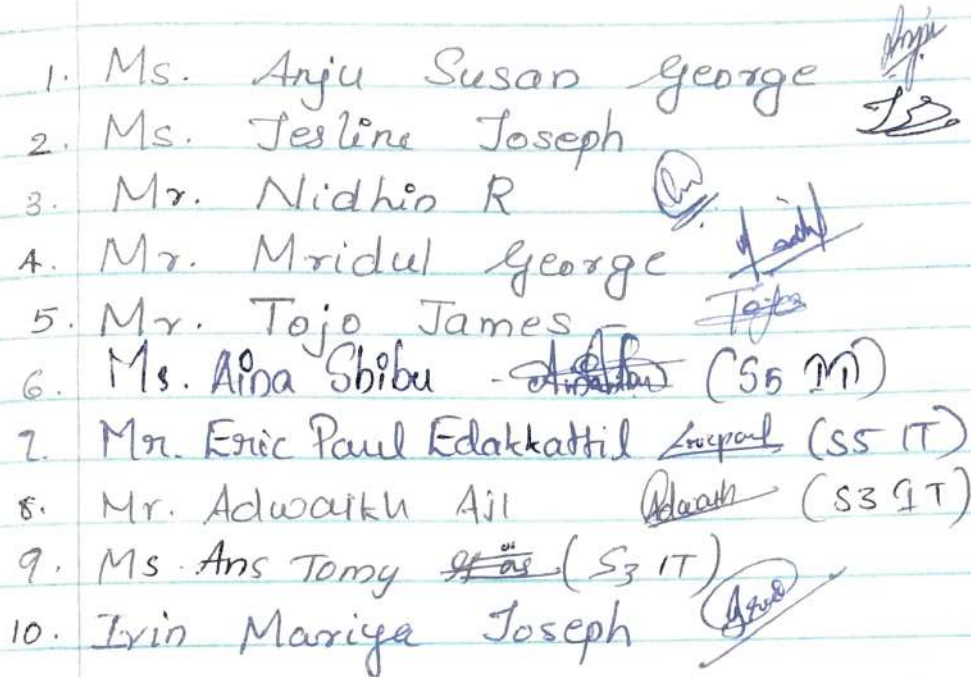 1. Ms. Anju Susan George Anju
2. Ms. Jesline Joseph
3. Mr. Nidhin R
4. Mr. Mridul George
5. Mr. Tojo James - Tojo
6. Ms. Aina Shibu - (S5 IT)
7. Mr. Eric Paul Edakkattil Ericpaul (S5 IT)
8. Mr. Adwaikh Ajl Adwaith (S3 IT)
9. Ms. Ans Tomy (S3 IT)
10. Irin Mariya Joseph